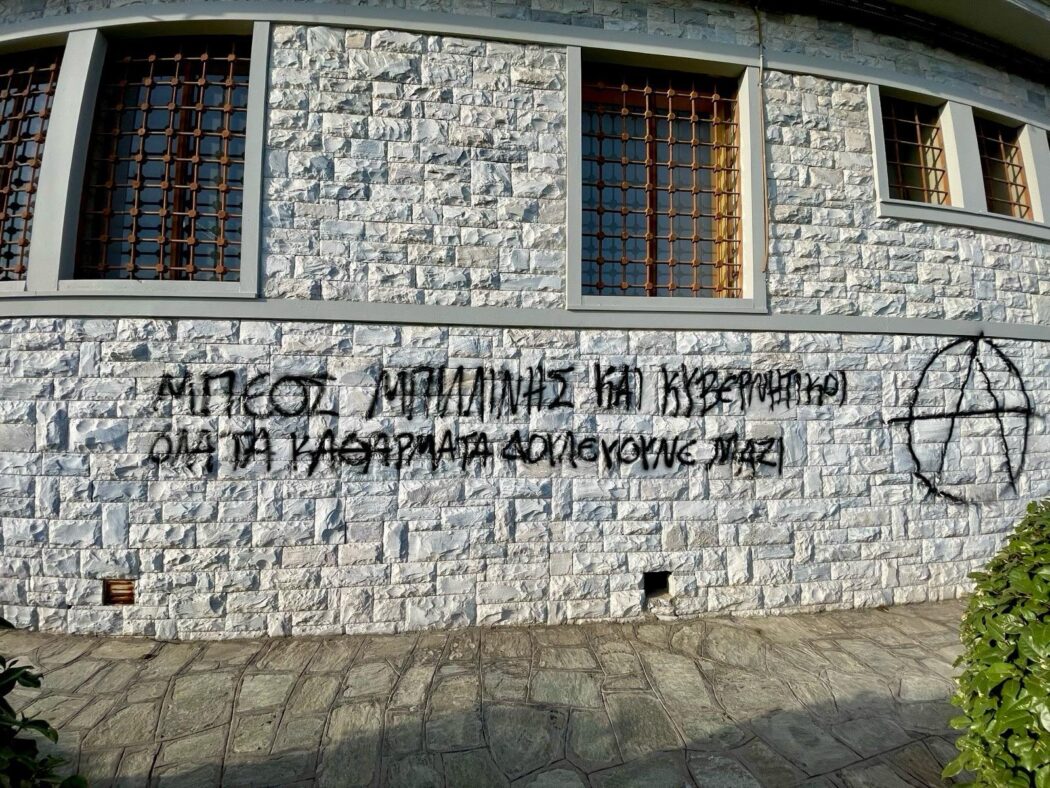 ΜΠΕΟΣ ΜΠΙΛΙΝΗΣ ΚΑΙ ΚΥΒΕΡΝΗΤΙΚΟΙ
ΟΛΑ ΤΑ ΚΑΘΑΡΜΑΤΑ ΔΟΥΛΕΥΟΥΝΕ ΜΑΖΙ